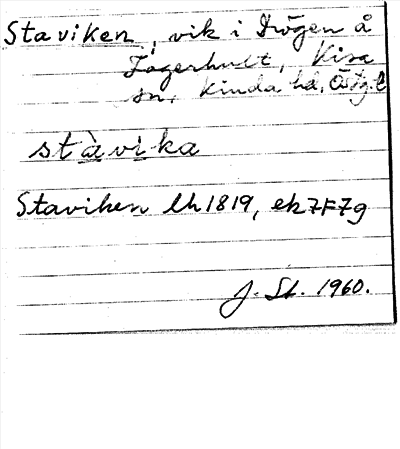 Staviken, vik i Drögen å
Jägerhult, Kisa
sn, Kinda hd, Östg.l
stàvika
Staviken lh 1819, ek 7F7g
J. St. 1960.